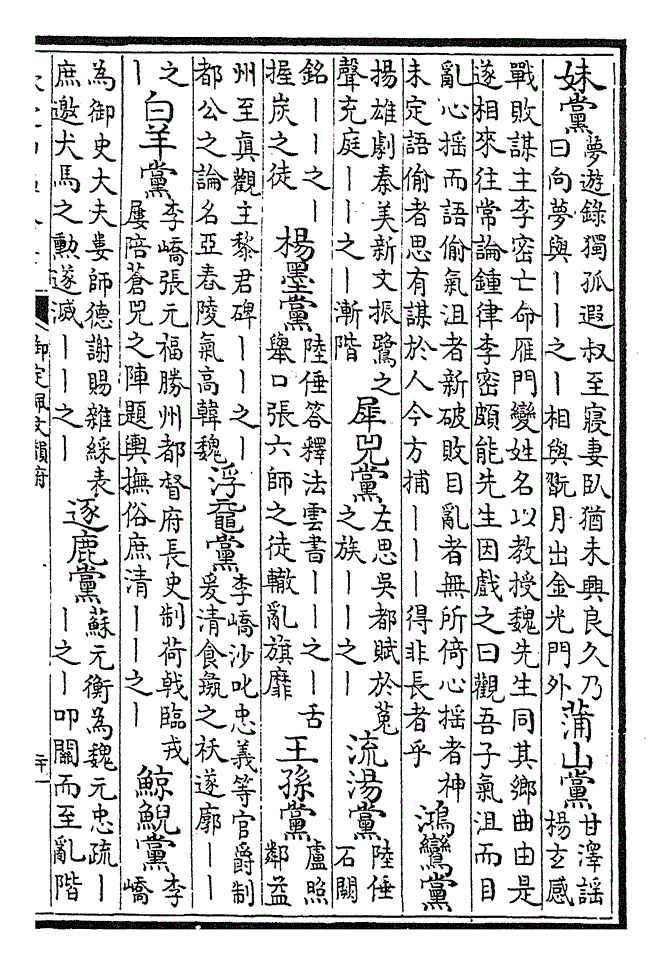 妹黨
夢遊錄獨孤遐叔至寢妻臥猶未興良久乃
曰向夢與丨丨之丨相與翫月出金光門外
蒲山黨
甘澤謠
楊玄感
戰敗謀主李密亡命雁門變姓名以教授魏先生同其鄉曲由是
遂相來往常論鍾律李密頗能先生因戲之曰觀吾子氣沮而目
亂心搖而語偷氣沮者新破敗目亂者無所倚心搖者神
未定語偷者思有謀於人今方捕丨丨丨得非長者乎
鴻鸞黨
揚雄劇秦美新文振鷺之
聲充庭丨丨之丨漸階
犀兕黨
左思吳都賦於菟
之族丨丨之丨
流湯黨
陸倕
石闕
銘丨丨之丨
握炭之徒
楊墨黨
陸倕答釋法雲書丨丨之丨舌
舉口張六師之徒轍亂旗靡
王孫黨
盧照
鄰益
州至眞觀主黎君碑丨丨之丨
都公之論名亞舂陵氣高韓魏
浮黿黨
李嶠沙叱忠義等官爵制
爰清食蝨之祅遂廓丨丨
之
丨
白羊黨
李嶠張元福勝州都督府長史制荷戟臨戎
屢陪蒼兕之陣題輿撫俗庶清丨丨之丨
鯨鯢黨
李
嶠
為御史大夫婁師德謝賜雜綵表
庶邀犬馬之勳遂滅丨丨之丨
逐鹿黨
蘇元衡為魏元忠疏丨
丨之丨叩關而至亂階
御定佩文韻府